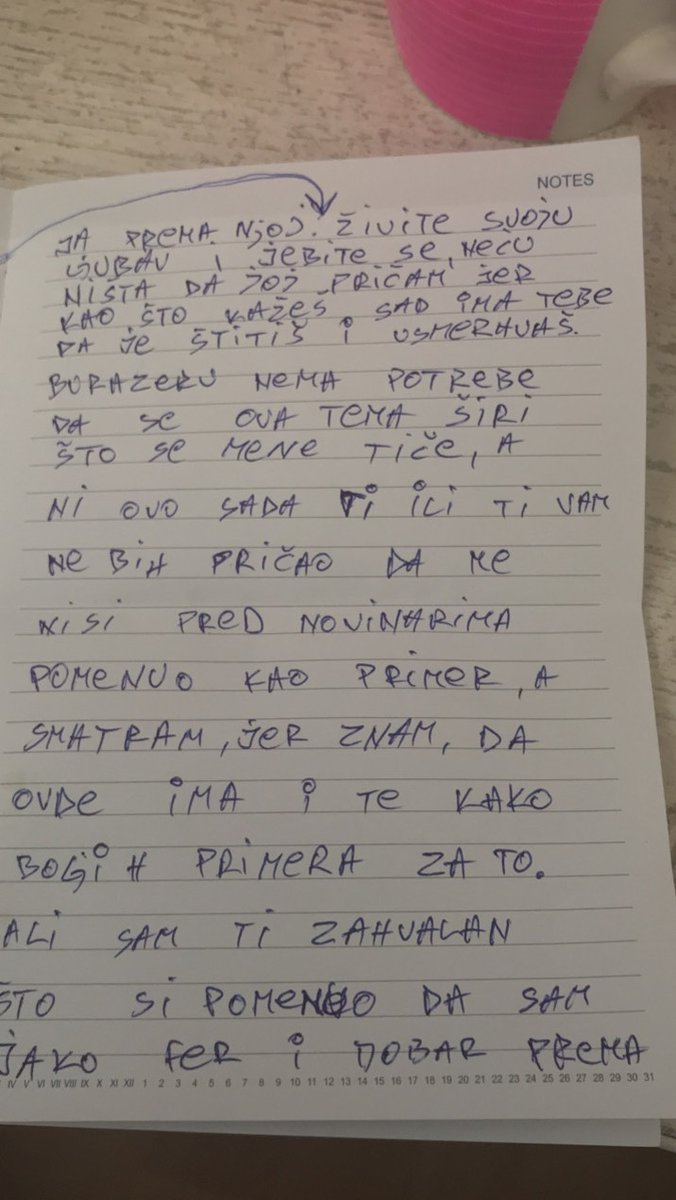 NOTES
JA PREMA NJOJ. ŽIVITE SVOJU
LJUBAV I JEBITE SE, NEĆU
NIŠTA DA JOJ PRIČAM JER
KAO ŠTO KAŽEŠ SAD IMA TEBE
DA JE ŠTITIŠ I USMERAVAŠ.
BURAZERU NEMA POTREBE
DA SE OVA TEMA ŠIRI
ŠTO SE MENE TIČE, A
NI OVO SADA TI ILI TI VAM
NE BIH PRIČAO DA ME
NISI PRED NOVINARIMA
POMENUO KAO PRIMER, A
SMATRAM, JER ZNAM, DA
OVDE IMA I TE KAKO
BOGIH PRIMERA ZA TO.
ALI SAM TI ZAHVALAN
ŠTO SI POMENUO DA SAM
JAKO FER I DOBAR PREMA
IV V VI VII VIII IX X XI XII 1 2 3 4 5 6 7 8 9 10 11 12 13 14 15 16 17 18 19 20 21 22 23 24 25 26 27 28 29 30 31